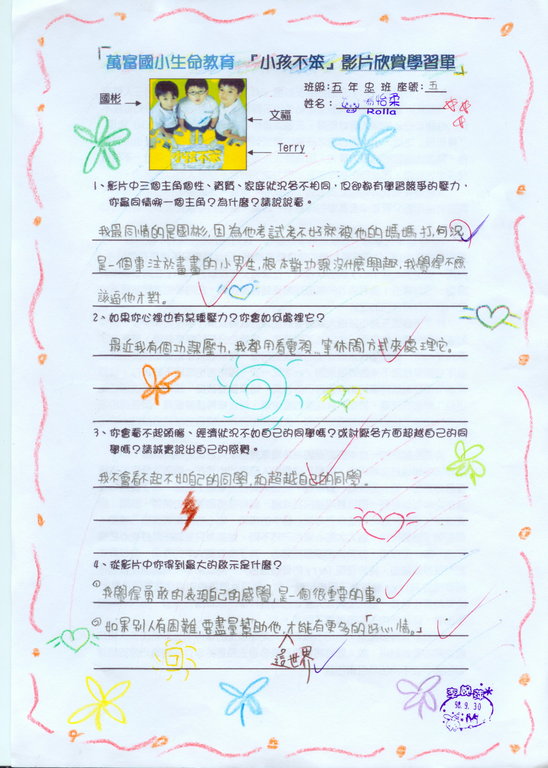 「萬富國小生命教育 「小孩不笨」影片欣賞學習單」
班級:五 年 忠 班 座號:五
姓名: 怡柔
Rolla
國彬
文福
Terry
小孩不笨
1、影片中三個主角個性、資質、家庭狀況各不相同,但卻都有學習競爭的壓力,
你最同情哪一個主角?為什麼?請說說看。
我最同情的是國彬,因為他考試考不好就被他的媽媽打,何況
是一個專注於畫畫的小男生,根本對功課沒什麼興趣,我覺得不應
該逼他才對。
2、如果你心裡也有某種壓力?你會如何處裡它?
最近我有個功課壓力,我都用看電視…等休閒方式來處理它。
3、你會看不起頭腦、經濟狀況不如自己的同學嗎?或討厭各方面超越自己的同
學嗎?請誠實說出自己的感覺。
我不會看不起不如自己的同學,和超越自己的同學。
4、從影片中你得到最大的啟示是什麼?
①我覺得勇敢的表現自己的感覺,是一個很重要的事。
②如果別人有困難,要盡量幫助他,才能有更多的「好心情。」
這世界
98.9.30